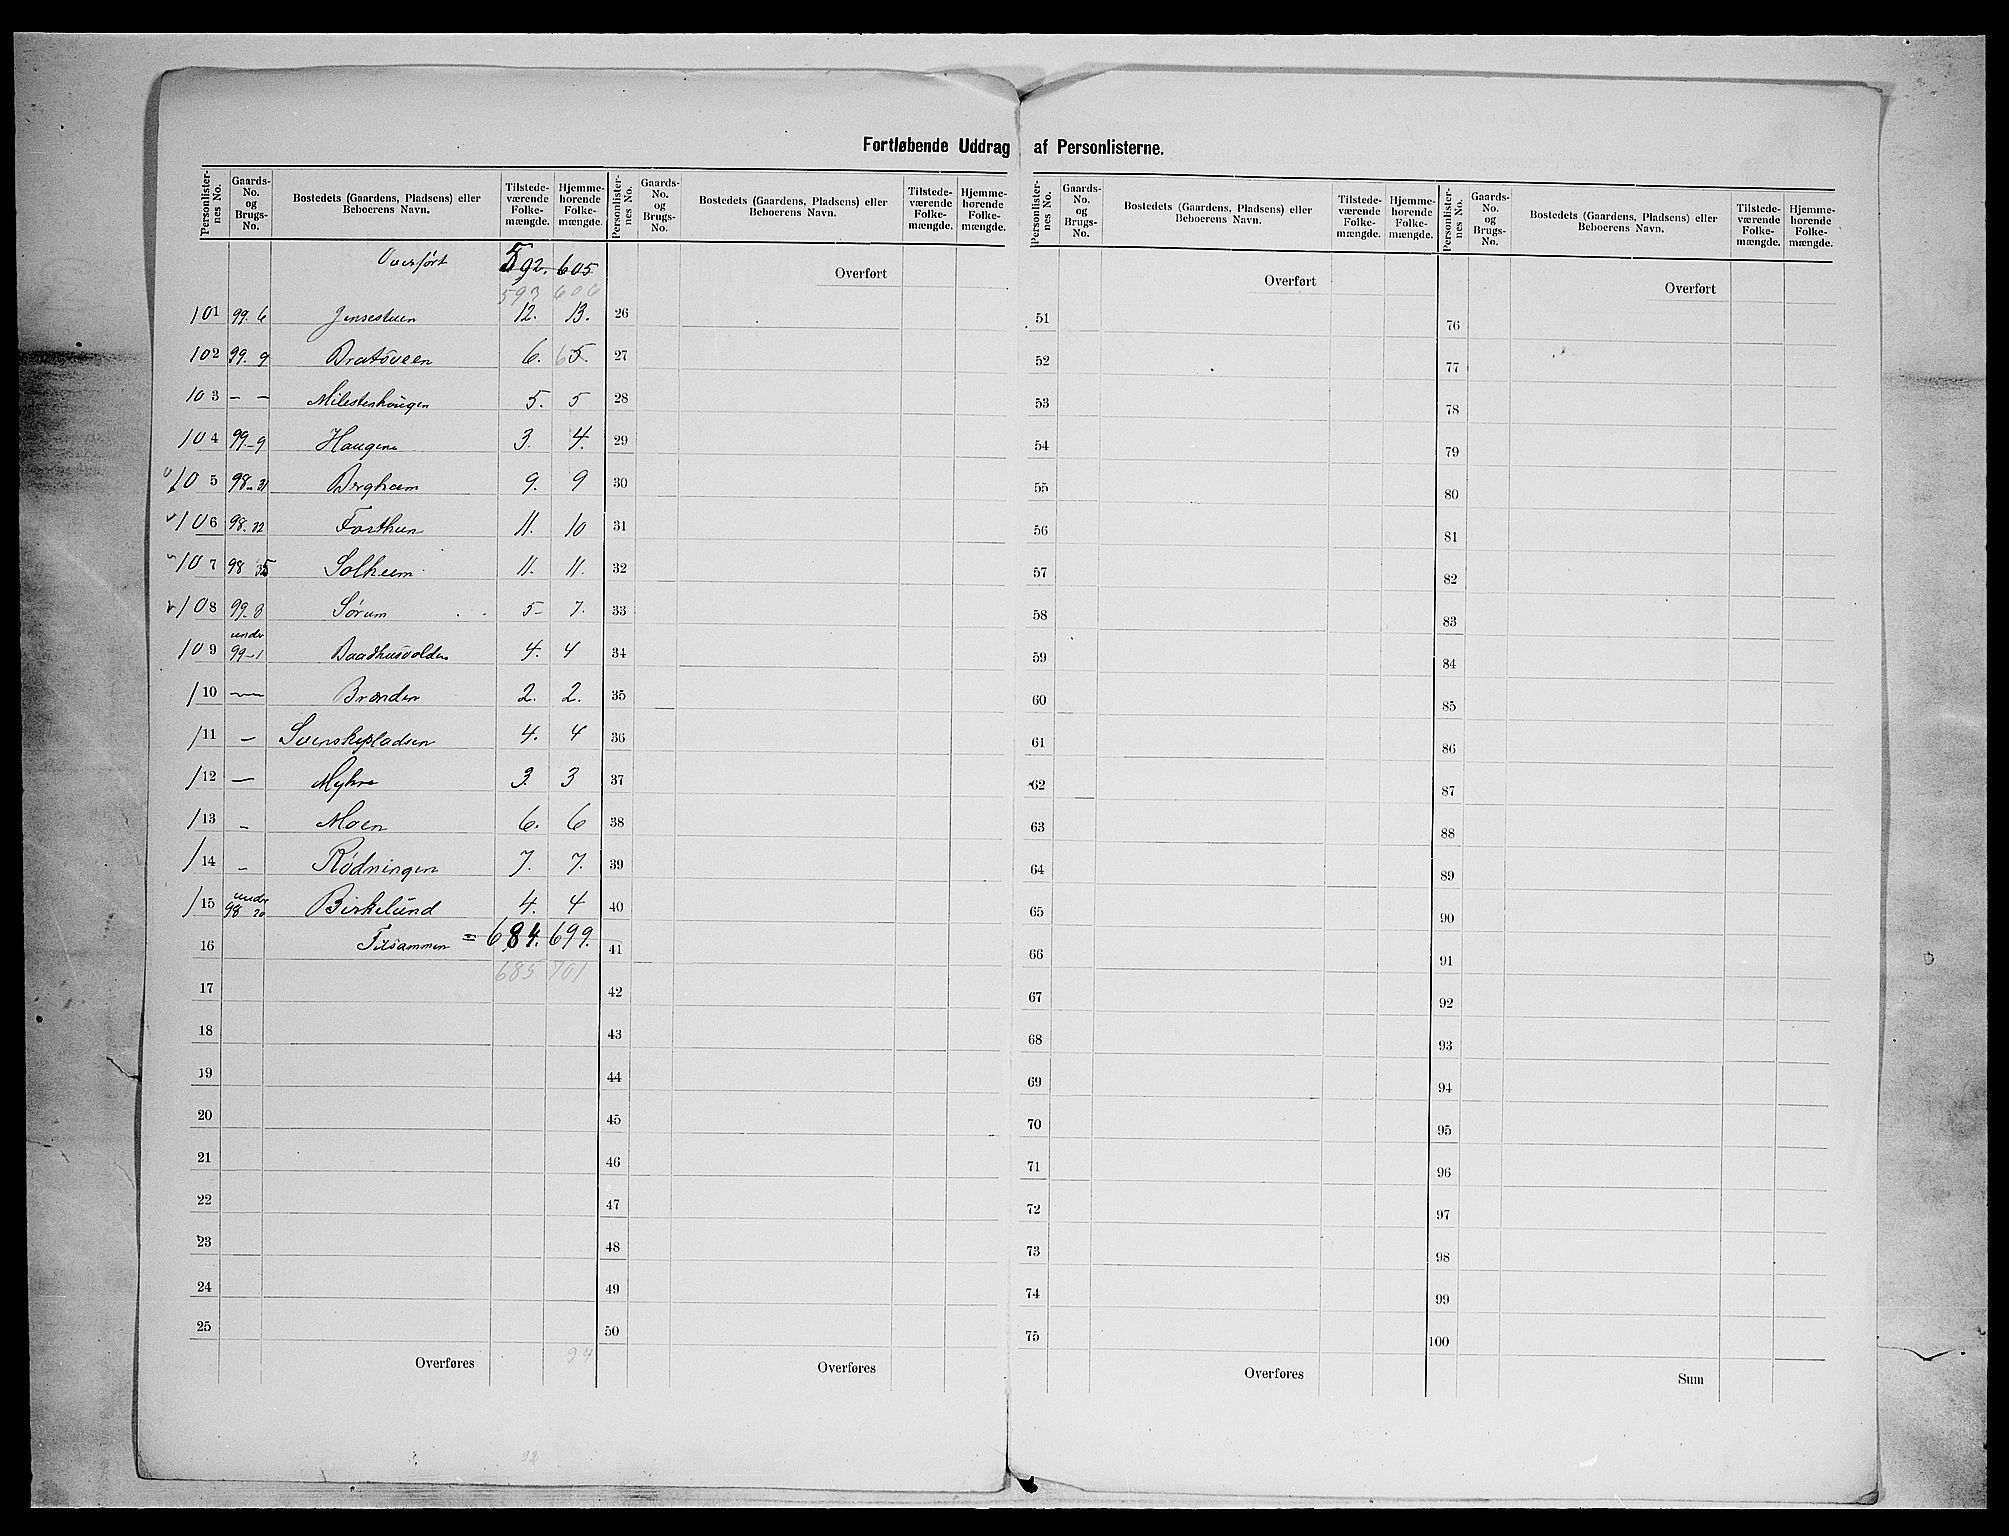 Fortløbende Uddrag af Personlisterne.
Personlister-nes No. Gaards-No. og Brugs-No. Bostedets (Gaardens, Pladsens) eller Beboerens Navn. Tilstede-værende Folke-mængde. Hjemme-hørende Folke-mængde. Personlister-nes No. Gaards-No. og Brugs-No. Bostedets (Gaardens, Pladsens) eller Beboerens Navn. Tilstede-værende Folke-mængde. Hjemme-hørende Folke-mængde. Personlister-nes No. Gaards-No. og Brugs-No. Bostedets (Gaardens, Pladsens) eller Beboerens Navn. Tilstede-værende Folke-mængde. Hjemme-hørende Folke-mængde. Personlister-nes No. Gaards-No. og Brugs-No. Bostedets (Gaardens, Pladsens) eller Beboerens Navn. Tilstede-værende Folke-mængde. Hjemme-hørende Folke-mængde.
Overført 592. 605 Overført Overført Overført
593 606
101 99. 6 Jensestuen 12. 13. 26 51 76
102 99. 9 Bratsveen 6. 6 5. 27 52 77
103 – – Milestenhougen 5. 5 28 53 78
104 99–9 Haugen 3. 4. 29 54 79
105 98–31 Bergheim 9. 9 30 55 80
106 98. 32 Forthun 11. 10 31 56 81
107 98 35 Solheim 11. 11. 32 57 82
108 99–8 Sørum 5– 7. 33 58 83
109 under 99–1 Baadhusvolden 4. 4 34 59 84
110 — Brænden 2. 2. 35 60 85
111 – Svenskepladsen 4. 4 36 61 86
112 — Myhre 3. 3 37 62 87
113 – Moen 6. 6 38 63 88
114 – Rødningen 7. 7. 39 64 89
115 under 98 20 Birkelund 4. 4 40 65 90
16 Tilsammen = 684. 699. 41 66 91
685 701
17 42 67 92
18 43 68 93
19 44 69 94
20 45 70 95
21 46 71 96
22 47 72 97
23 48 73 98
24 49 74 99
25 50 75 100
94
Overføres Overføres Overføres Sum
92